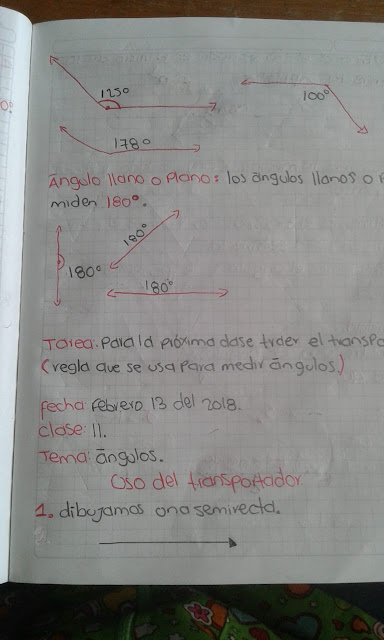 125°
100°
178°
Ángulo llano o plano: los ángulos llanos o
miden 180°.
180°
180°
180°
Tarea: Para la próxima clase traer el
(regla que se usa para medir ángulos)
fecha: febrero 13 del 2018.
clase: 11.
Tema: ángulos.
Uso del transportador
1. dibujamos una semirecta.